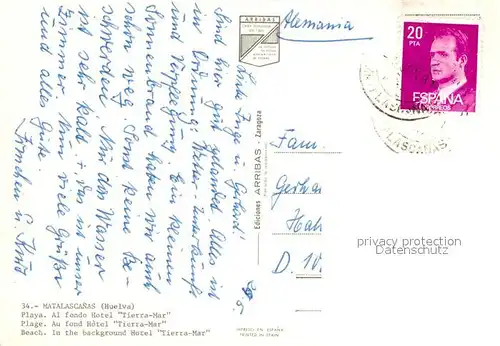 Alemania
ARRIBAS
20
PTA
ESPAÑA
MATALASCAÑAS
Liebe Inge u. Gerhard!
Sind hier gut gelandet. Alles ist
in Ordnung. Wetter, Unterkunft
und Verpflegung. Ein kleinen
Sonnenbrand haben wir auch
schon weg. Sonst keine Be-
schwerden. Nur das Wasser
ist sehr kalt u. das ist unser
Zimmer. Nun viele Grüße
und alles Gute.
Ediciones ARRIBAS - Zaragoza
Fam.
Gerha
Hal
D. 10
34.- MATALASCAÑAS (Huelva)
Playa. Al fondo Hotel "Tierra-Mar"
Plage. Au fond Hôtel "Tierra-Mar"
Beach. In the background Hotel "Tierra-Mar"
IMPRESO EN ESPAÑA
PRINTED IN SPAIN
privacy protection
Datenschutz